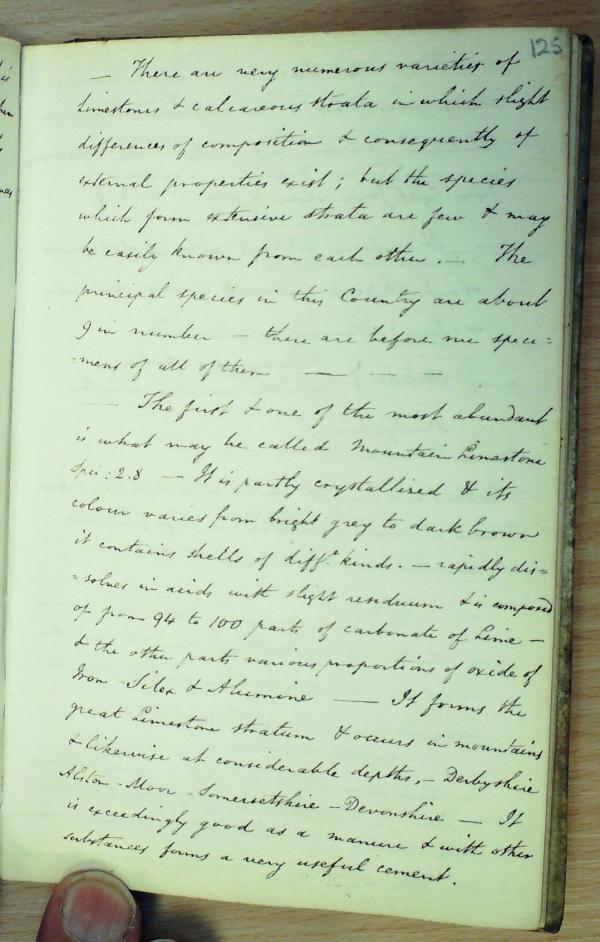 125
— There are very numerous varieties of
limestones & calcareous strata in which slight
differences of composition & consequently of
external properties exist; but the species
which form extensive strata are few & may
be easily known from each other. — The
principal species in this Country are about
9 in number — there are before me speci=
=mens of all of them — — —
— The first & one of the most abundant
is what may be called Mountain Limestone
Spe: 2.8 — It is partly crystallized & its
colour varies from bright grey to dark brown
it contains shells of difft. kinds. — rapidly dis=
=solves in acids with slight residuum & is composed
of from 94 to 100 parts of carbonate of Lime —
& the other parts various proportions of oxide of
Iron - Silex & Alumine — It forms the
great Limestone stratum & occurs in mountains
& likewise at considerable depths, - Derbyshire
Alston-Moor - Somersetshire - Devonshire — It
is exceedingly good as a manure & with other
substances forms a very useful cement.